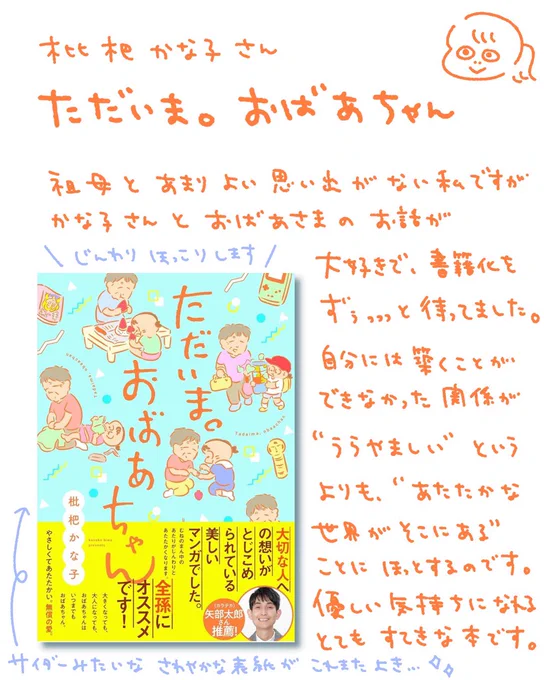 枇杷かな子さん
ただいま。おばあちゃん
祖母とあまりよい思い出がない私ですが
かな子さんとおばあさまのお話が
大好きで、書籍化を
ずぅっっっと待ってました。
自分には築くことが
できなかった関係が
“うらやましい”という
よりも、“あたたかな
世界がそこにある”
ことにほっとするのです。
優しい気持ちになれる
とてもすてきな本です。
\ じんわり ほっこりします /
ただいま。
おばあちゃん
枇杷かな子
大切な人へ
の想いが
とじこめ
られている
美しい
マンガでした。
矢部太郎
さん
推薦!
全孫に
オススメ
です!
大きくなっても、
大人になっても、
おばあちゃんは
いつまでも
おばあちゃん。
やさしくてあたたかい、無償の愛。
サイダーみたいな さわやかな表紙が これまたよき…